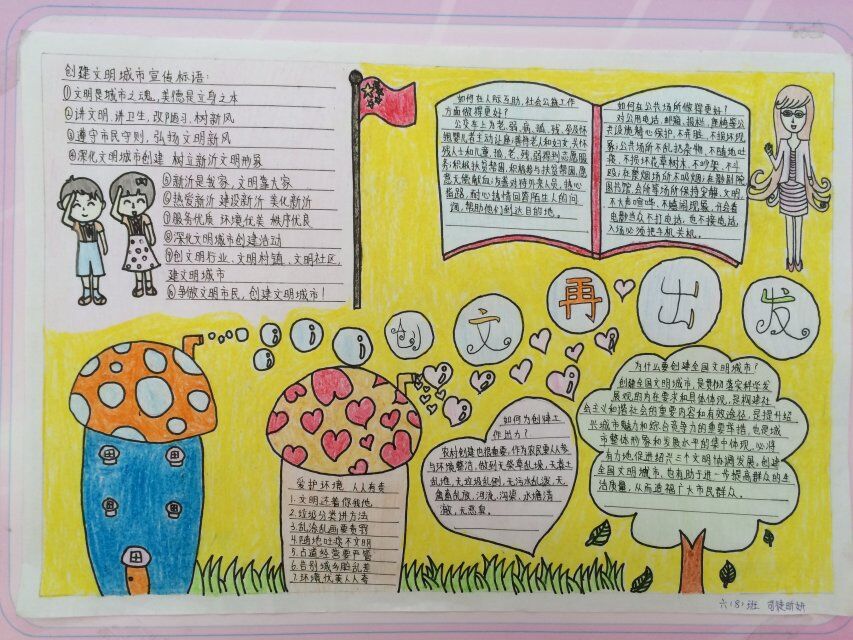 创建文明城市宣传标语:
①文明是城市之魂，美德是立身之本
②讲文明，讲卫生，改陋习，树新风
③遵守市民守则，弘扬文明新风
④深化文明城市创建 树立新沂文明形象
⑤新沂是我家，文明靠大家
⑥热爱新沂 建设新沂 美化新沂
⑦服务优质 环境优美 秩序优良
⑧深化文明城市创建活动
⑨创文明行业、文明村镇、文明社区，
建文明城市
⑩争做文明市民，创建文明城市！
如何在人际互助，社会公益工作
方面做得更好？
公交车上为老、弱、病、残、孕及怀
抱婴儿者主动让座；善待老人和妇女，关怀
残人士和儿童、孤、老、残、弱得到志愿服
务；积极扶贫帮困，积极参与扶贫帮困，愿
意无偿献血；与善对待外来人员，热心
指路，耐心热情回答陌生人的问
询，帮助他们到达目的地。
如何在公共场所做得更好？
对公用电话、邮箱、报栏、座椅等公
共设施精心保护，不弄脏、不损坏现
象；公共场所不乱扔杂物，不随地吐
痰、不损坏花草树木、不吵架、不斗
殴；在禁烟场所不吸烟；在影剧院
图书馆、会场等场所保持安静、文明，
不大声喧哗、不嬉闹现象，开会看
电影当众不打电话，也不接电话，
入场必须把手机关机。
创文再出发
为什么要创建全国文明城市？
创建全国文明城市，是贯彻落实科学发
展观的内在要求和具体体现，是构建社
会主义和谐社会的重要内容和有效途径，是提升绍
兴城市魅力和综合竞争力的重要举措，也是城
市整体形象和发展水平的集中体现，必将
有力地促进绍兴三个文明协调发展，创建
全国文明城市，也有助于进一步提高群众的生
活质量，从而造福广大市民群众。
如何为创建工
作出力？
农村创建也很重要，作为农民要人人参
与环境整洁，做到无柴草乱垛，无粪土
乱堆，无垃圾乱倒，无污水乱泼，无
禽畜乱放，河流、沟渠、水塘清
澈，无恶臭。
爱护环境 人人有责
1.文明还看你我他，
2.垃圾分类讲方法
3.乱涂乱画要责罚
4.随地吐痰不文明
5.占道经营要严管
6.告别城乡脏乱差
7.环境优美人人夸
六（8）班 司徒昕妍